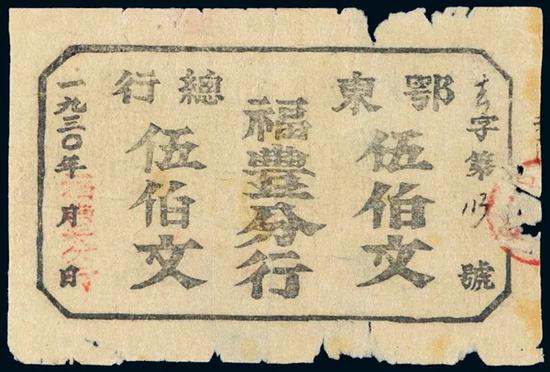 鄂東
總行
字第
號
伍伯文
福豐分行
伍伯文
一九三〇年 月 日